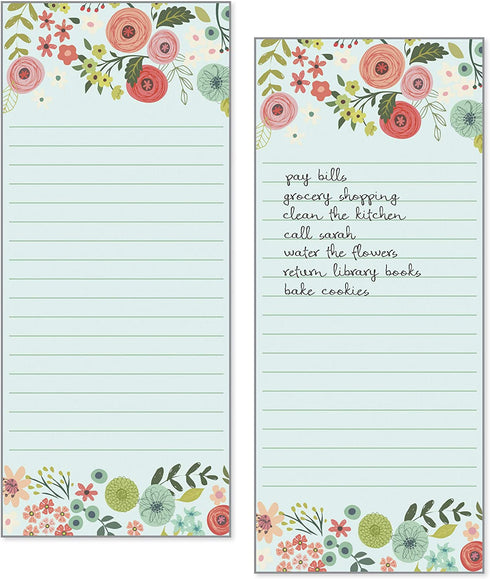 pay bills
grocery shopping
clean the kitchen
call sarah
water the flowers
return library books
bake cookies